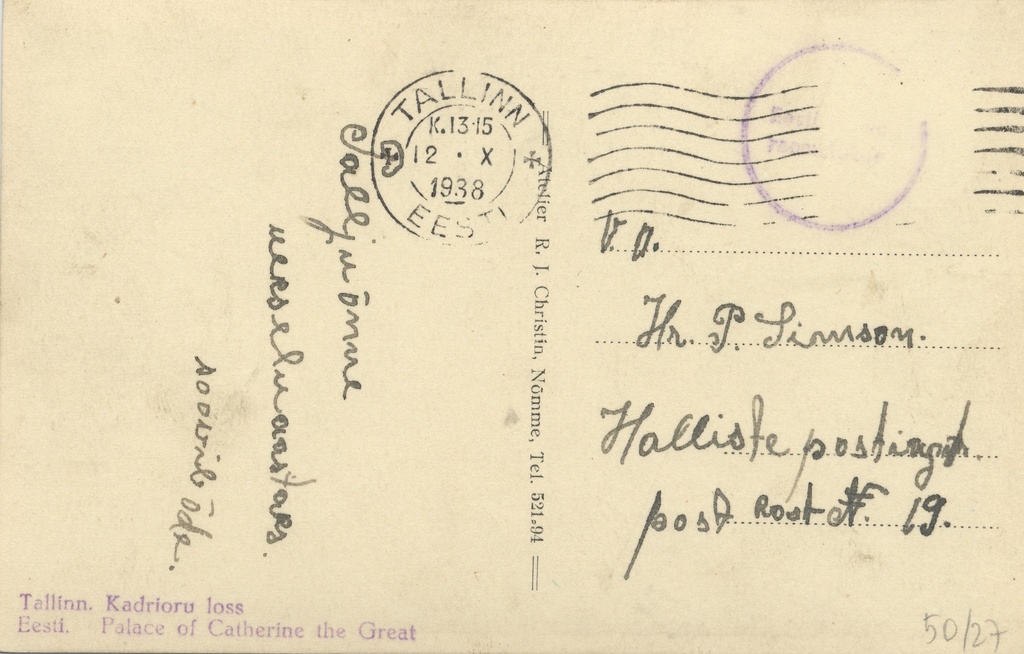 TALLINN
K.13-15
12 · X
1938
EESTI
Palju õnne
uueks eluaastaks.
soovib õde.
Atelier R. J. Christin, Nõmme, Tel. 521-94
V. A.
Hr. P. Simson.
Halliste postiagt.
post Kast N. 19.
Tallinn. Kadrioru loss
Eesti. Palace of Catherine the Great
50/27